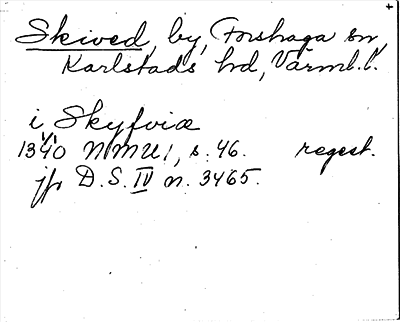 +
Skived, by, Forshaga sn,
Karlstads hd, Värml. l.
i Skyfviæ
1/1
1340 NMU 1, s. 46. regest.
jfr D.S. IV n. 3465.